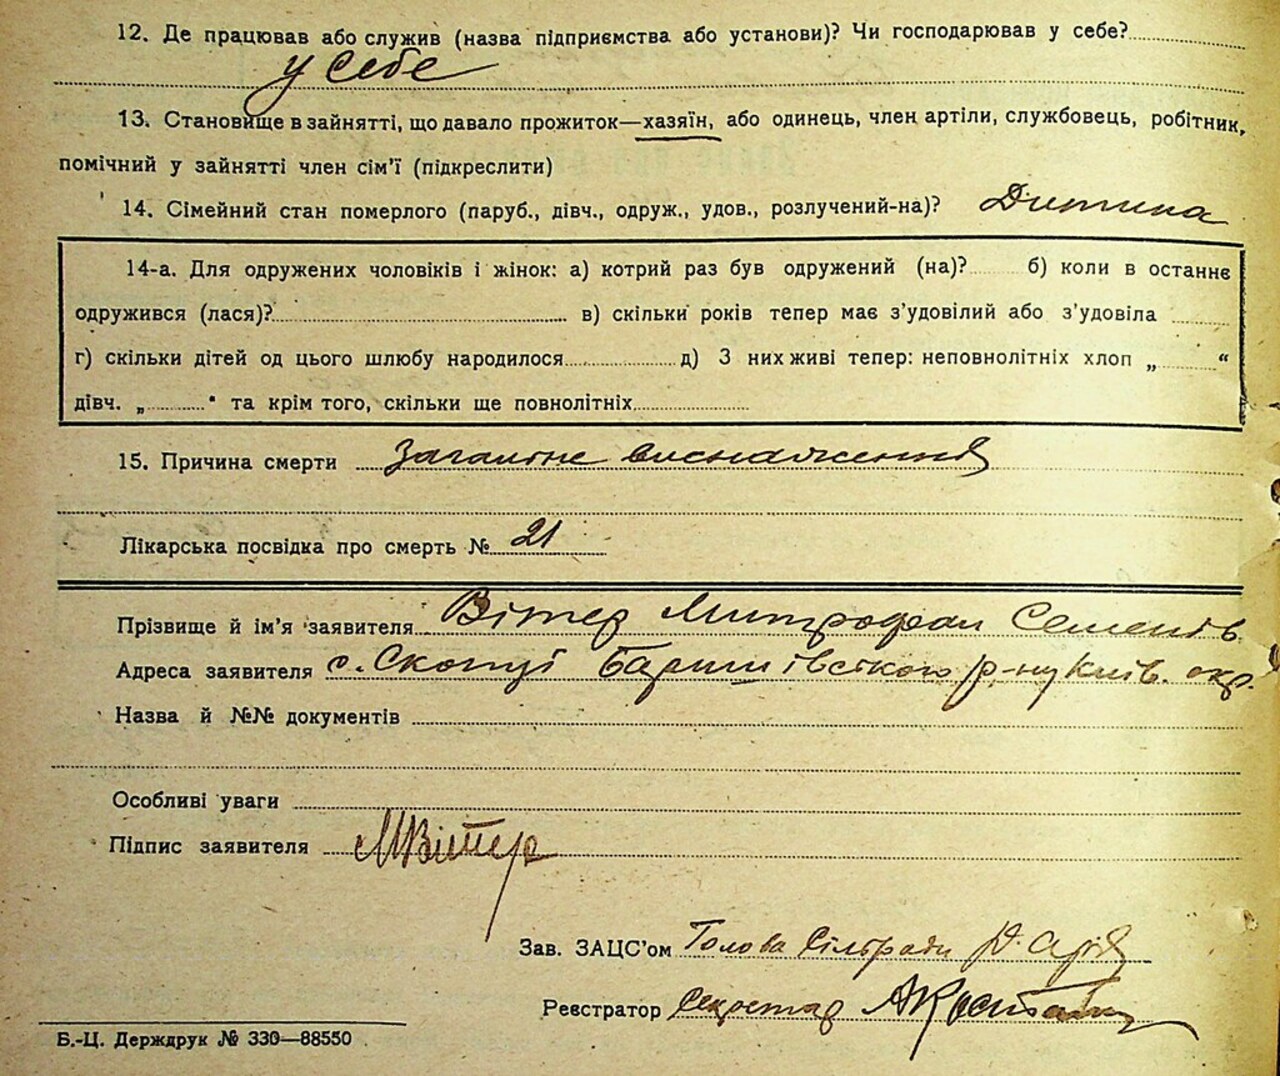 12. Де працював або служив (назва підприємства або установи)? Чи господарював у себе?
у себе
13. Становище в зайнятті, що давало прожиток—хазяїн, або одинець, член артіли, службовець, робітник,
помічний у зайнятті член сім'ї (підкреслити)
14. Сімейний стан померлого (паруб., дівч., одруж., удов., розлучений-на)? Дитина
14-а. Для одружених чоловіків і жінок: а) котрий раз був одружений (на)? б) коли в останнє
одружився (лася)? в) скільки років тепер має з'удовілий або з'удовіла
г) скільки дітей од цього шлюбу народилося д) З них живі тепер: неповнолітніх хлоп „ “
дівч. „ “ та крім того, скільки ще повнолітніх
15. Причина смерти Загальне виснаження
Лікарська посвідка про смерть № 21
Прізвище й ім'я заявителя Вітер Митрофан Семенів
Адреса заявителя с. Скопці Баришівського р-ну Київ. окр.
Назва й №№ документів
Особливі уваги
Підпис заявителя МВітер
Зав. ЗАЦС'ом Голова Сільради
Реєстратор Секретар
Б.-Ц. Держдрук № 330—88550